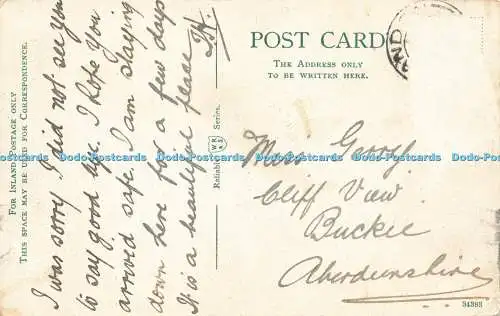 FOR INLAND POSTAGE ONLY
THIS SPACE MAY BE USED FOR CORRESPONDENCE.
I was sorry I did not see you
to say good bye. I hope you
arrived safe. I am staying
down here for a few days
It is a beautiful place
W.R.&S
Reliable Series.
POST CARD
THE ADDRESS ONLY
TO BE WRITTEN HERE.
AND
Miss
Cliff View
Buckie
Aberdeenshire
34393
Dodo-Postcards Dodo-Postcards Dodo-Postcards Dodo-Postcards Dodo-Postcards